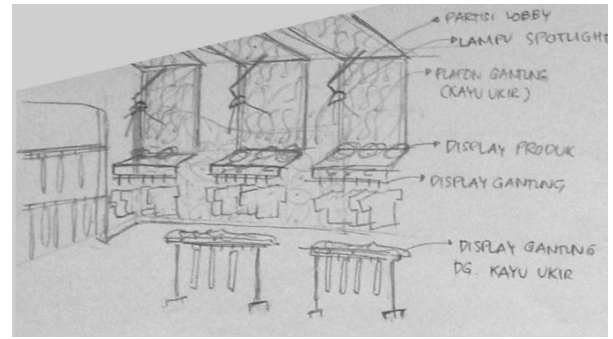 PARTISI LOBBY
LAMPU SPOTLIGHT
PLAFON GANTUNG
(KAYU UKIR)
DISPLAY PRODUK
DISPLAY GANTUNG
DISPLAY GANTUNG
DG. KAYU UKIR